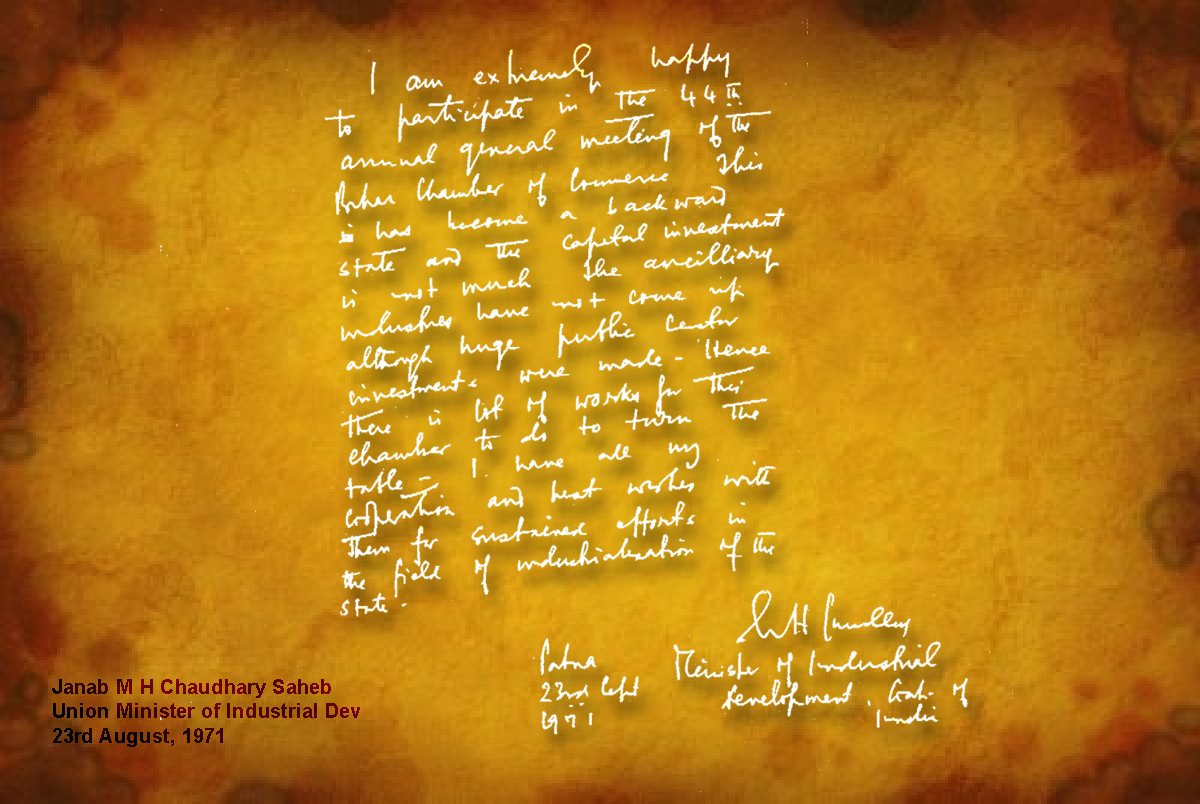 I am extremely happy
to participate in the 44th
annual general meeting of the
Bihar Chamber of Commerce This
is has become a backward
state and the capital investment
is not much The ancilliary
industries have not come up
although huge public Cector
investments were made - Hence
there is lot of works for this
chamber to do to turn the
table - I have all my
cooperation and best wishes with
them for sustained efforts in
the field of industrialization of the
state -
Patna
23rd Sept
1971
Minister of Industrial
Development, Govt. of
India
Janab M H Chaudhary Saheb
Union Minister of Industrial Dev
23rd August, 1971